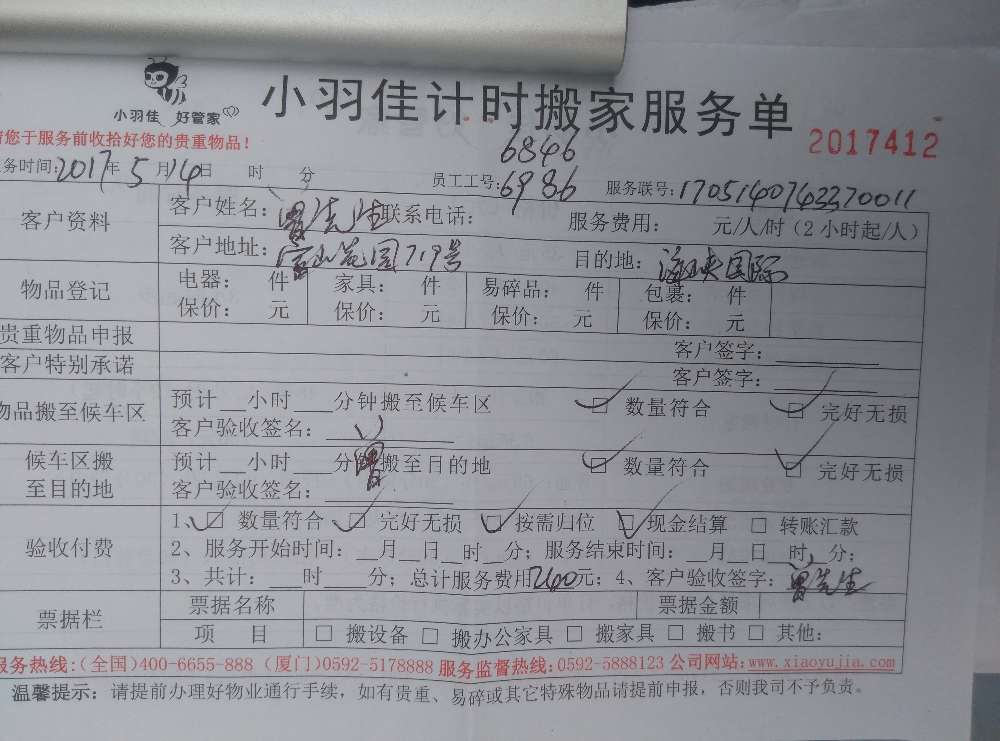 小羽佳 好管家
小羽佳计时搬家服务单
请您于服务前收拾好您的贵重物品!
2017412
6846
服务时间:2017年5月14日 时 分 员工工号:6986 服务联号:1705140743370011
客户资料 客户姓名:曾先生 联系电话: 服务费用: 元/人/时(2小时起/人)
客户地址:富山花园719号 目的地:海峡国际
物品登记 电器: 件 家具: 件 易碎品: 件 包裹: 件
保价: 元 保价: 元 保价: 元 保价: 元
贵重物品申报 客户签字:
客户特别承诺 客户签字:
物品搬至候车区 预计__小时___分钟搬至候车区 ☑ 数量符合 ☑ 完好无损
客户验收签名:
候车区搬至目的地 预计__小时___分钟搬至目的地 ☑ 数量符合 ☑ 完好无损
客户验收签名:曾
验收付费 1、☑ 数量符合 ☑ 完好无损 ☑ 按需归位 ☑ 现金结算 □ 转账汇款
2、服务开始时间:__月__日__时__分;服务结束时间:__月__日__时__分;
3、共计:___时___分;总计服务费用2400元;4、客户验收签字:曾先生
票据栏 票据名称 票据金额
项 目 □ 搬设备 □ 搬办公家具 □ 搬家具 □ 搬书 □ 其他:
服务热线:(全国)400-6655-888(厦门)0592-5178888 服务监督热线:0592-5888123 公司网站:www.xiaoyujia.com
温馨提示:请提前办理好物业通行手续,如有贵重、易碎或其它特殊物品请提前申报,否则我司不予负责。